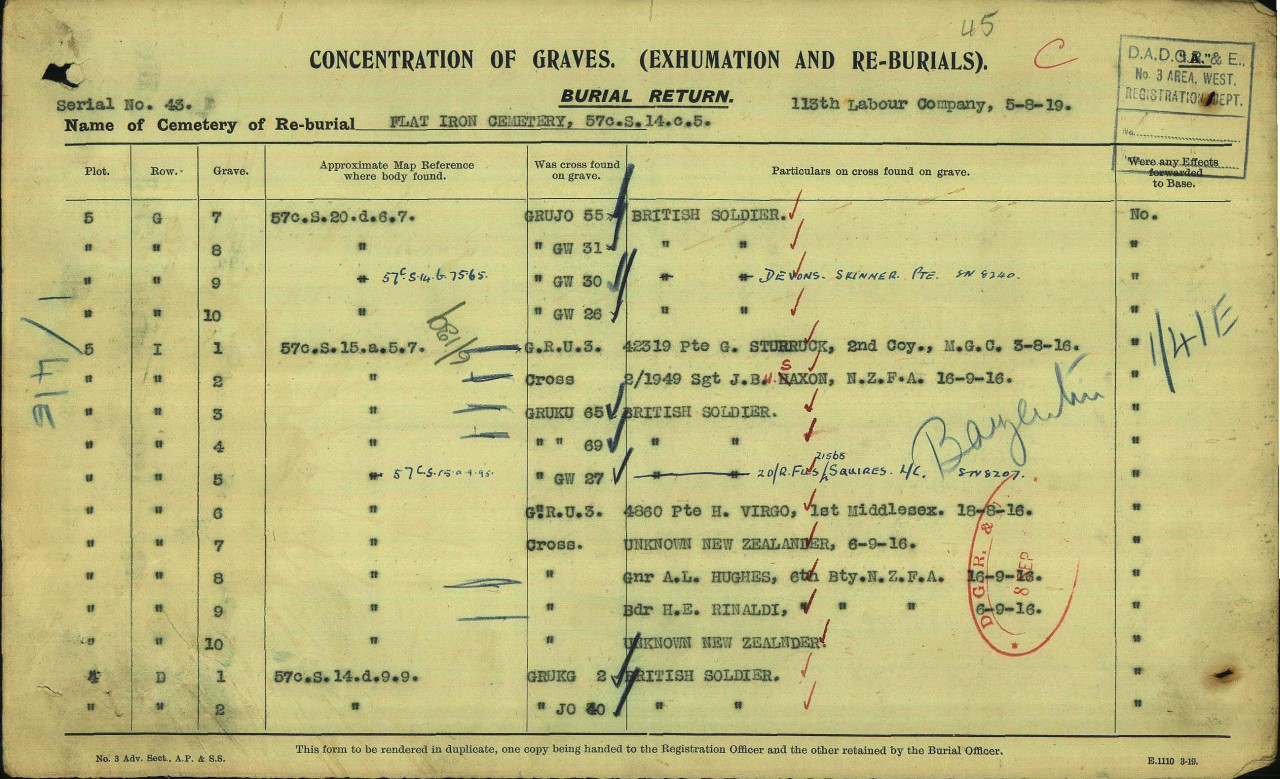 45
CONCENTRATION OF GRAVES. (EXHUMATION AND RE-BURIALS).
C
D.A.D.G.R. & E.,
"A."
No. 3 AREA, WEST.
REGISTRATION DEPT.
No.
BURIAL RETURN.
Serial No. 43.
113th Labour Company, 5-8-19.
Name of Cemetery of Re-burial FLAT IRON CEMETERY, 57c.S.14.c.5.
Plot. Row. Grave. Approximate Map Reference where body found. Was cross found on grave. Particulars on cross found on grave. Were any Effects forwarded to Base.
5 G 7 57c.S.20.d.6.7. GRUJO 55 BRITISH SOLDIER. No.
" " 8 " " GW 31 " " "
" " 9 " 57C.S.14.b.75.65. " GW 30 " " DEVONS. SKINNER. PTE. SN 8240. "
" " 10 " " GW 26 " " "
5 I 1 57c.S.15.a.5.7. G.R.U.3. 42319 Pte G. STURRUCK, 2nd Coy., M.G.C. 3-8-16. "
" " 2 " Cross 2/1949 Sgt J.B. SAXON, N.Z.F.A. 16-9-16. "
" " 3 " GRUKU 65 BRITISH SOLDIER. "
" " 4 " " " 69 " " "
21565
" " 5 " 57C.S.15.a.9.95. " GW 27 " " 20/R.FUS SQUIRES. L/C. SN 8207. "
" " 6 " G"R.U.3. 4860 Pte H. VIRGO, 1st Middlesex. 18-8-16. "
" " 7 " Cross. UNKNOWN NEW ZEALANDER, 6-9-16. "
" " 8 " " Gnr A.L. HUGHES, 6th Bty.N.Z.F.A. 16-9-16. "
" " 9 " " Bdr H.E. RINALDI, " " " 6-9-16. "
" " 10 " " UNKNOWN NEW ZEALNDER. "
4 D 1 57c.S.14.d.9.9. GRUKG 2 BRITISH SOLDIER. "
" " 2 " " JO 40 " " "
1/41E
Bazentin
D.G.R. & E.
8 SEP
This form to be rendered in duplicate, one copy being handed to the Registration Officer and the other retained by the Burial Officer.
No. 3 Adv. Sect., A.P. & S.S.
E.1110 3-19.